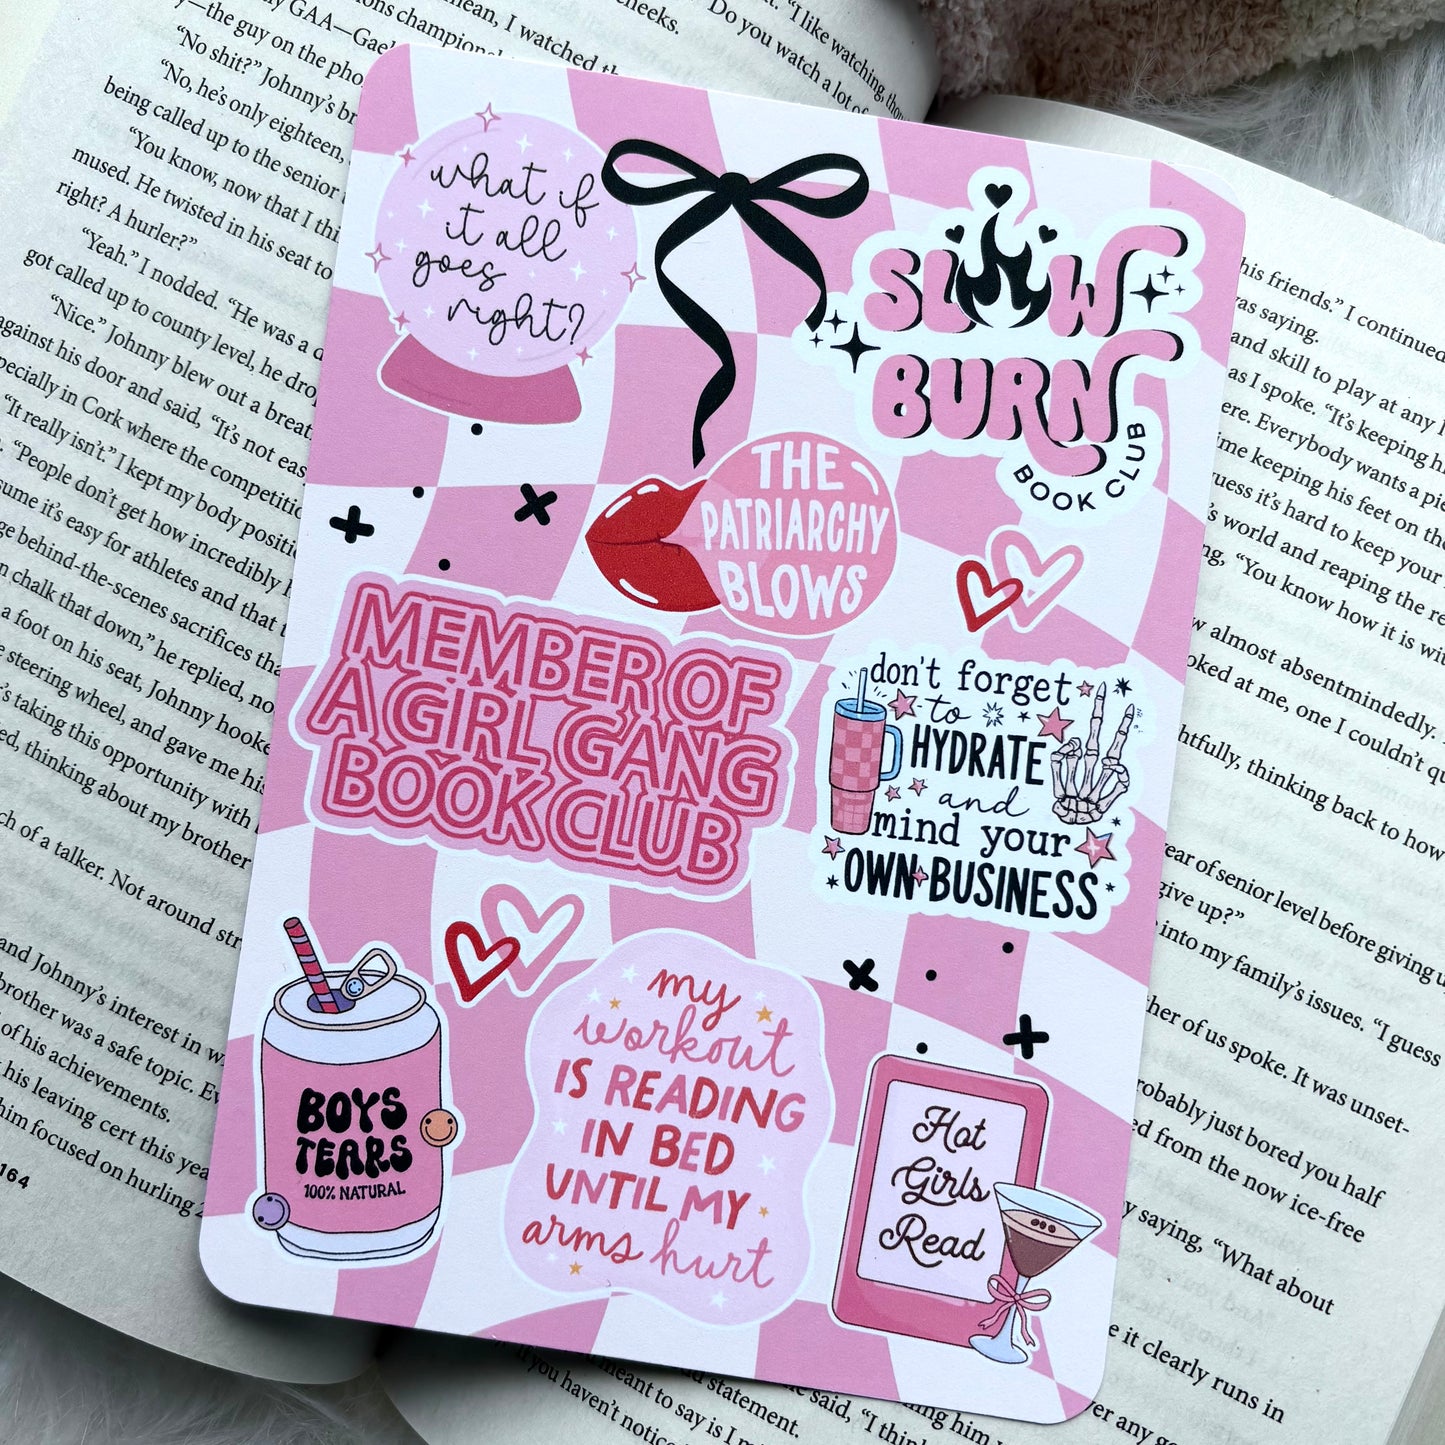 what if
it all
goes
right?
SLOW
BURN
BOOK CLUB
THE
PATRIARCHY
BLOWS
MEMBER OF
A GIRL GANG
BOOK CLUB
don't forget
to
HYDRATE
and
mind your
OWN BUSINESS
BOYS
TEARS
100% NATURAL
my
workout
IS READING
IN BED
UNTIL MY
arms hurt
Hot
Girls
Read
mean, I watched
cheeks.
"I like watching, thou
Do you watch a lot of
my GAA—Gael
ons champion
—the guy on the pho
"No shit?" Johnny's br
"No, he's only eighteen,
being called up to the senior
"You know, now that I thi
mused. He twisted in his seat to
right? A hurler?"
"Yeah." I nodded. "He was a d
got called up to county level, he drop
"Nice." Johnny blew out a breat
against his door and said, "It's not eas
specially in Cork where the competitio
"It really isn't." I kept my body positi
"People don't get how incredibly h
sume it's easy for athletes and that t
ge behind-the-scenes sacrifices tha
n chalk that down," he replied, no
a foot on his seat, Johnny hooke
e steering wheel, and gave me his
's taking this opportunity with
ed, thinking about my brother
ch of a talker. Not around str
and Johnny's interest in w
brother was a safe topic. Ev
of his achievements.
his leaving cert this yea
him focused on hurling
164
his friends." I continued
was saying.
and skill to play at any l
as I spoke. "It's keeping hi
ere. Everybody wants a pie
ime keeping his feet on the
uess it's hard to keep your
's world and reaping the re
ng, "You know how it is wit
w almost absentmindedly.
oked at me, one I couldn't qu
htfully, thinking back to how
year of senior level before giving u
give up?"
into my family's issues. "I guess
her of us spoke. It was unset-
robably just bored you half
ed from the now ice-free
y saying, "What about
e it clearly runs in
er any
meant to say is I
d statement.
he said, "I think
if you haven't notice